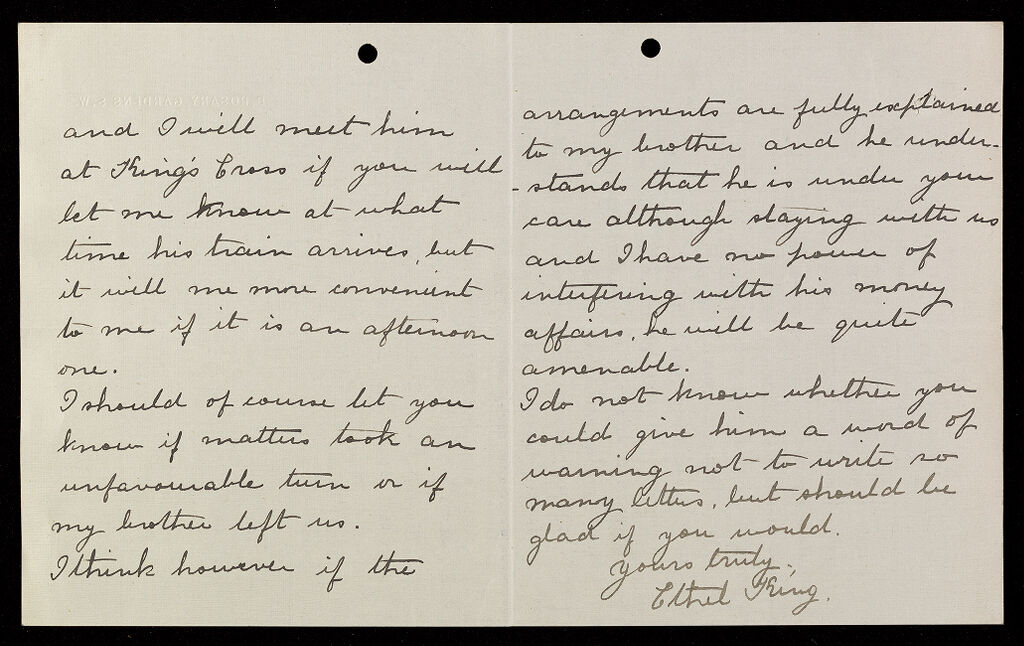 and I will meet him
at King's Cross if you will
let me know at what
time his train arrives, but
it will me more convenient
to me if it is an afternoon
one.
I should of course let you
know if matters took an
unfavourable turn or if
my brother left us.
I think however if the
arrangements are fully explained
to my brother and he under-
-stands that he is under your
care although staying with us
and I have no power of
interfering with his money
affairs, he will be quite
amenable.
I do not know whether you
could give him a word of
warning not to write so
many letters, but should be
glad if you would.
Yours truly,
Ethel King.